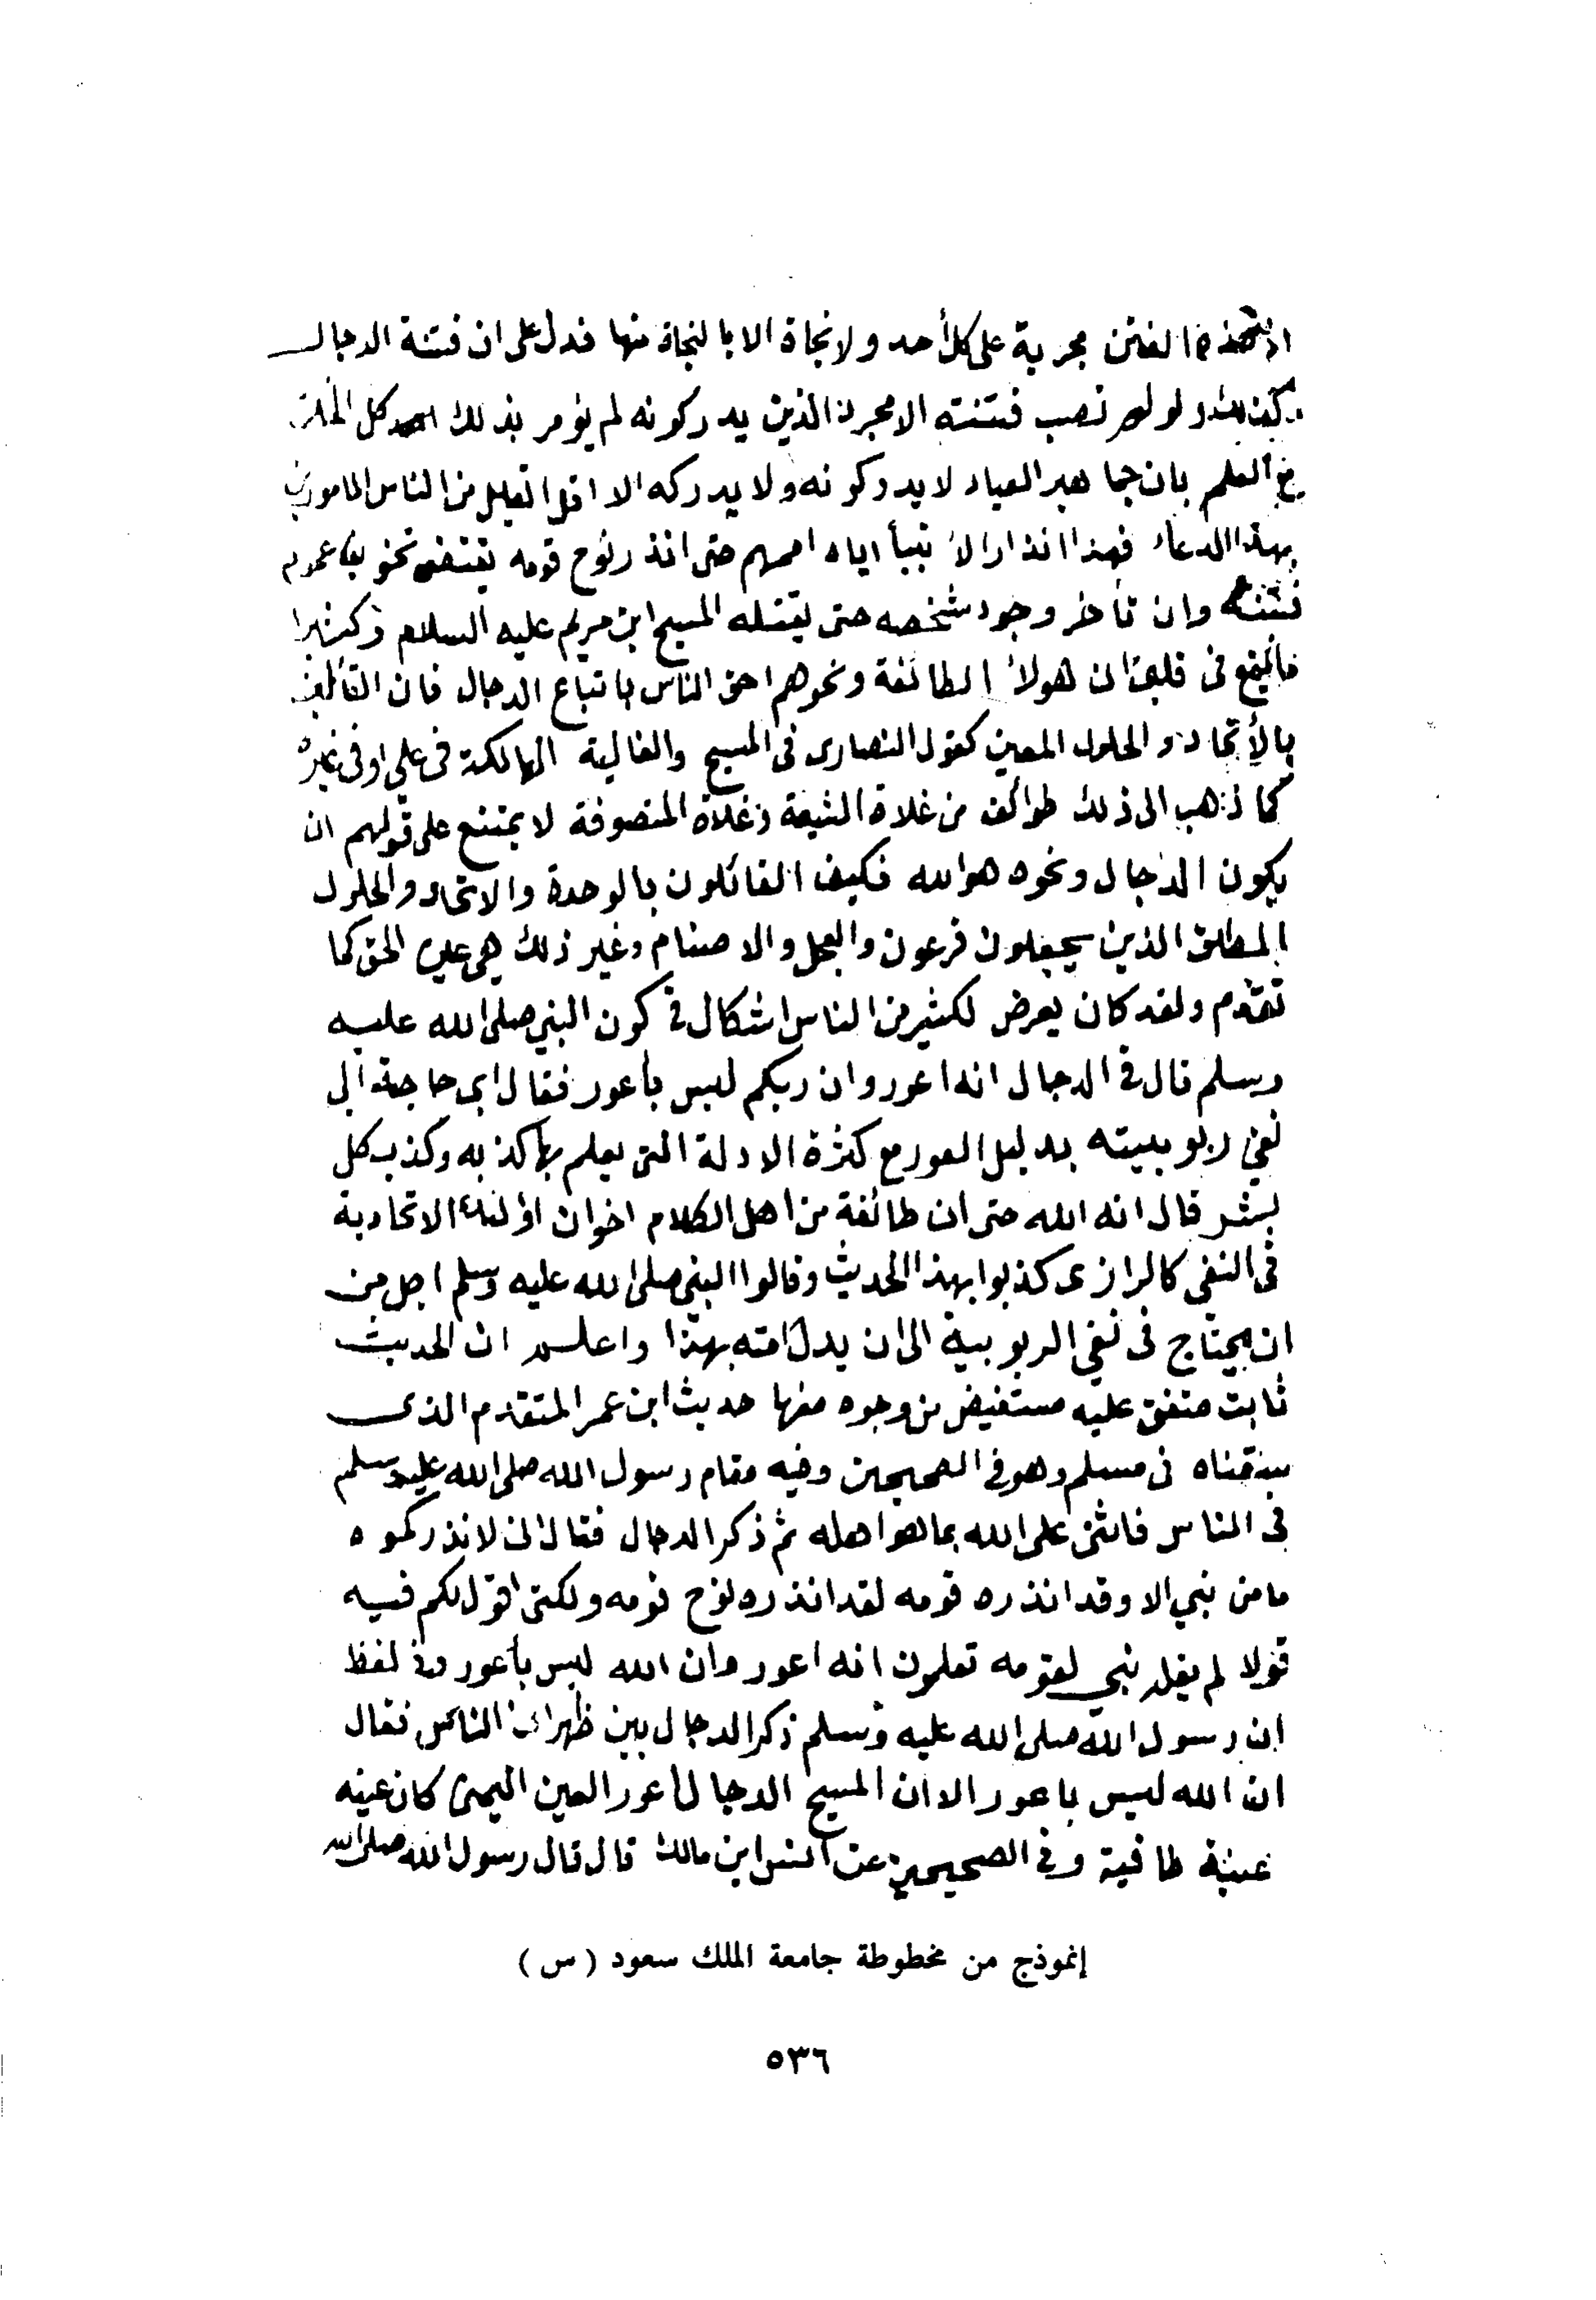 الفتن مجربة على كل أحد ولا نجاة الا بالنجاة منها فدل على ان فتنة الدجال
ولو لم تصب فتنته الا مجرد الذين يدركونه لم يؤمر بذلك كل
العلم بان جماهير العباد لا يدركونه ولا يدركه الا اقل القليل من الناس المامورين
بهذا الدعاء فهذا انذار الانبيأ اياه اممهم حتى انذر نوح قومه يقتضى تخويف عموم
فتنته وان تأخر وجود شخصه حتى يقتله المسيح ابن مريم عليه السلام وكثيرا
ما يقع فى قلبى ان هولاء الطائفة ونحوهم احق الناس باتباع الدجال فان القائلين
بالأتحاد والحلول المعين كقول النصارى فى المسيح والغالية الهالكة فى علي او فى غيره
كما ذهب الى ذلك طوائف من غلاة الشيعة وغلاة المتصوفة لا يمتنع على قولهم ان
يكون الدجال ونحوه هو الله فكيف القائلون بالوحدة والاتحاد والحلول
المطلق الذين يجعلون فرعون والعجل والاصنام وغير ذلك هى عين الحق كما
تقدم ولقد كان يعرض لكثير من الناس اشكال في كون النبي صلى الله عليه
وسلم قال في الدجال انه اعور وان ربكم ليس بأعور فقال اى حاجة الى
نفي ربوبيته بدليل العور مع كثرة الادلة التى يعلم بها كذبه وكذب كل
بشر قال انه الله حتى ان طائفة من اهل الكلام اخوان اولئك الاتحادية
فى النفي كالرازى كذبوا بهذا الحديث وقالوا النبي صلى الله عليه وسلم اجل من
ان يحتاج فى نفي الربوبية الى ان يدل امته بهذا واعلم ان الحديث
ثابت متفق عليه مستفيض من وجوه منها حديث ابن عمر المتقدم الذى
سقناه فى مسلم وهو في الصحيحين وفيه فقام رسول الله صلى الله عليه وسلم
فى الناس فاثنى على الله بما هو اهله ثم ذكر الدجال فقال انى لانذركموه
ما من نبي الا وقد انذره قومه لقد انذره نوح قومه ولكنى اقول لكم فيه
قولا لم يقله نبي لقومه تعلمون انه اعور وان الله ليس بأعور وفي لفظ
ان رسول الله صلى الله عليه وسلم ذكر الدجال بين ظهراني الناس فقال
ان الله ليس باعور الا ان المسيح الدجال أعور العين اليمنى كان عينه
عنبة طافية وفي الصحيحين عن انس ابن مالك قال قال رسول الله صلى الله
إنموذج من مخطوطة جامعة الملك سعود ( س )
٥٣٦